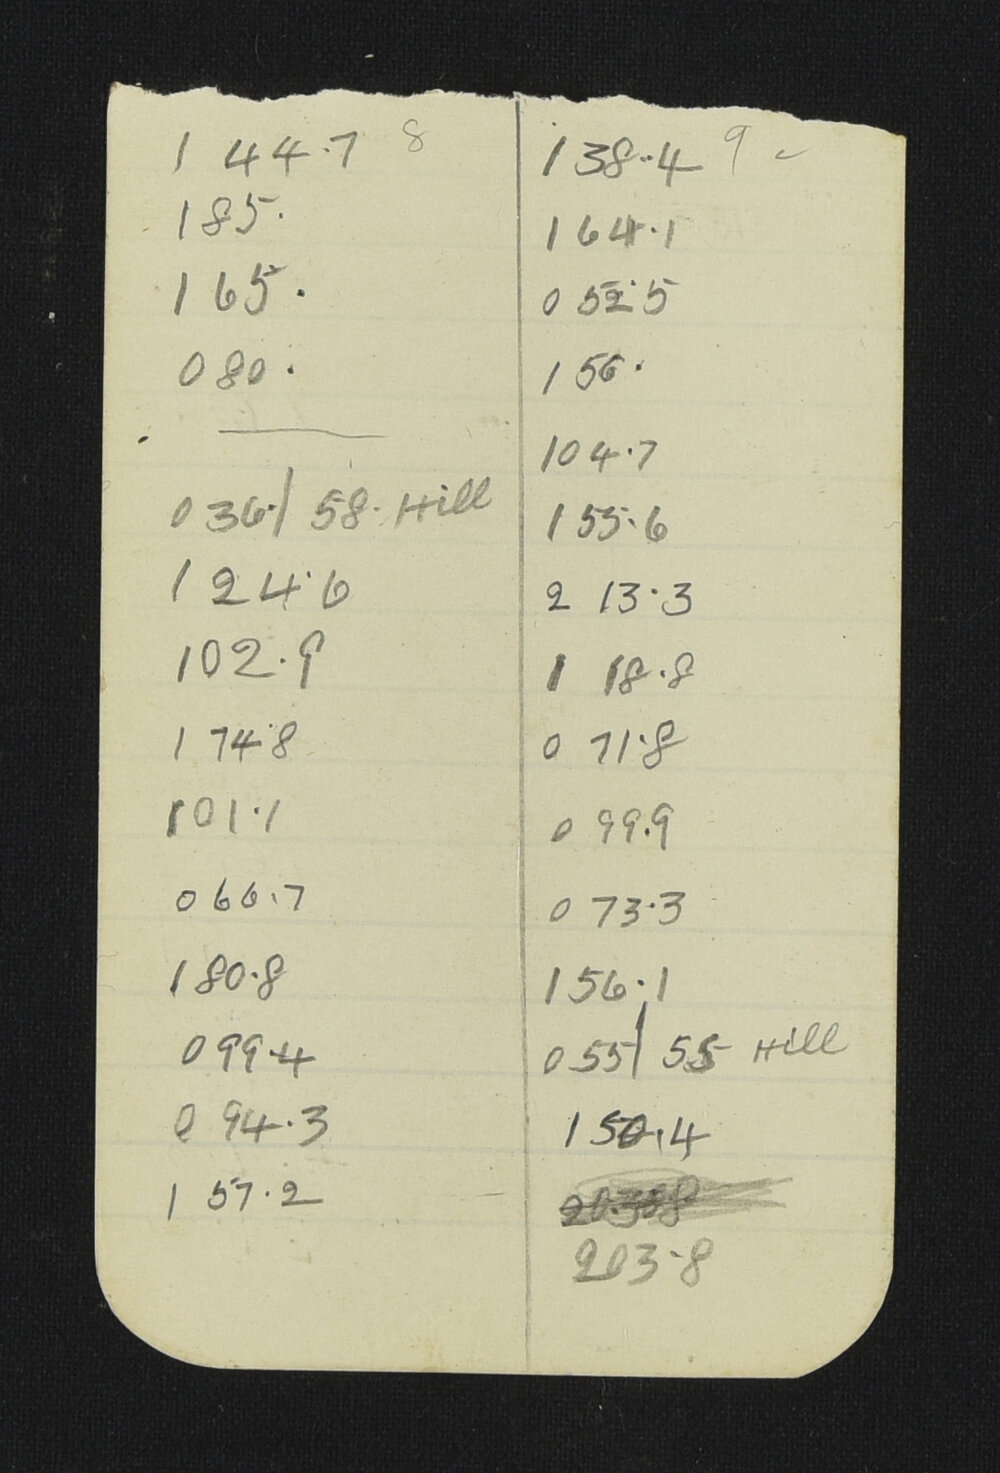 1 44.7 8
185.
165.
080.
036./ 58. Hill
124.6
102.9
174.8
101.1
066.7
180.8
099.4
094.3
157.2
138.4 9
164.1
052.5
156.
104.7
155.6
213.3
118.8
071.8
099.9
073.3
156.1
055/ 55 Hill
150.4
203.8